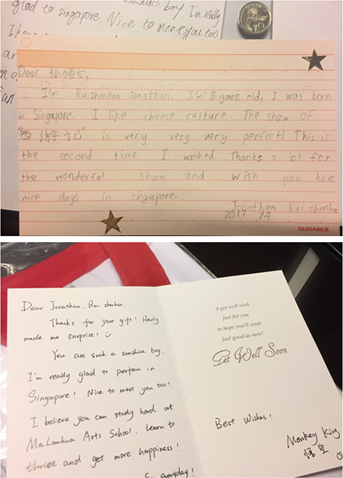 glad to singapore. Nice to meet you too!
Dear 孙悟空,
I'm Rui Shenhao Jonathan, I'm 8 years old, I was born
in Singapore. I like chinese culture. The show of
"西游记" is very very very perfect! This is
the second time I watched Thanks a lot for
the wonderful show and wish you have
nice days in singapore.
Jonathan Rui
2017
DURABLE
Dear Jonathan. Rui
Thanks for your gift! Really
made me surprise!
You are such a sunshine boy.
I'm really glad to perform in
Singapore! Nice to meet you too!
I believe you can study hard at
Arts School. Learn to
thrive and get more happiness!
everyday!
A get well wish
just for you
to hope you'll soon
feel good as new!
Get Well Soon
Best Wishes!
Monkey King
悟空